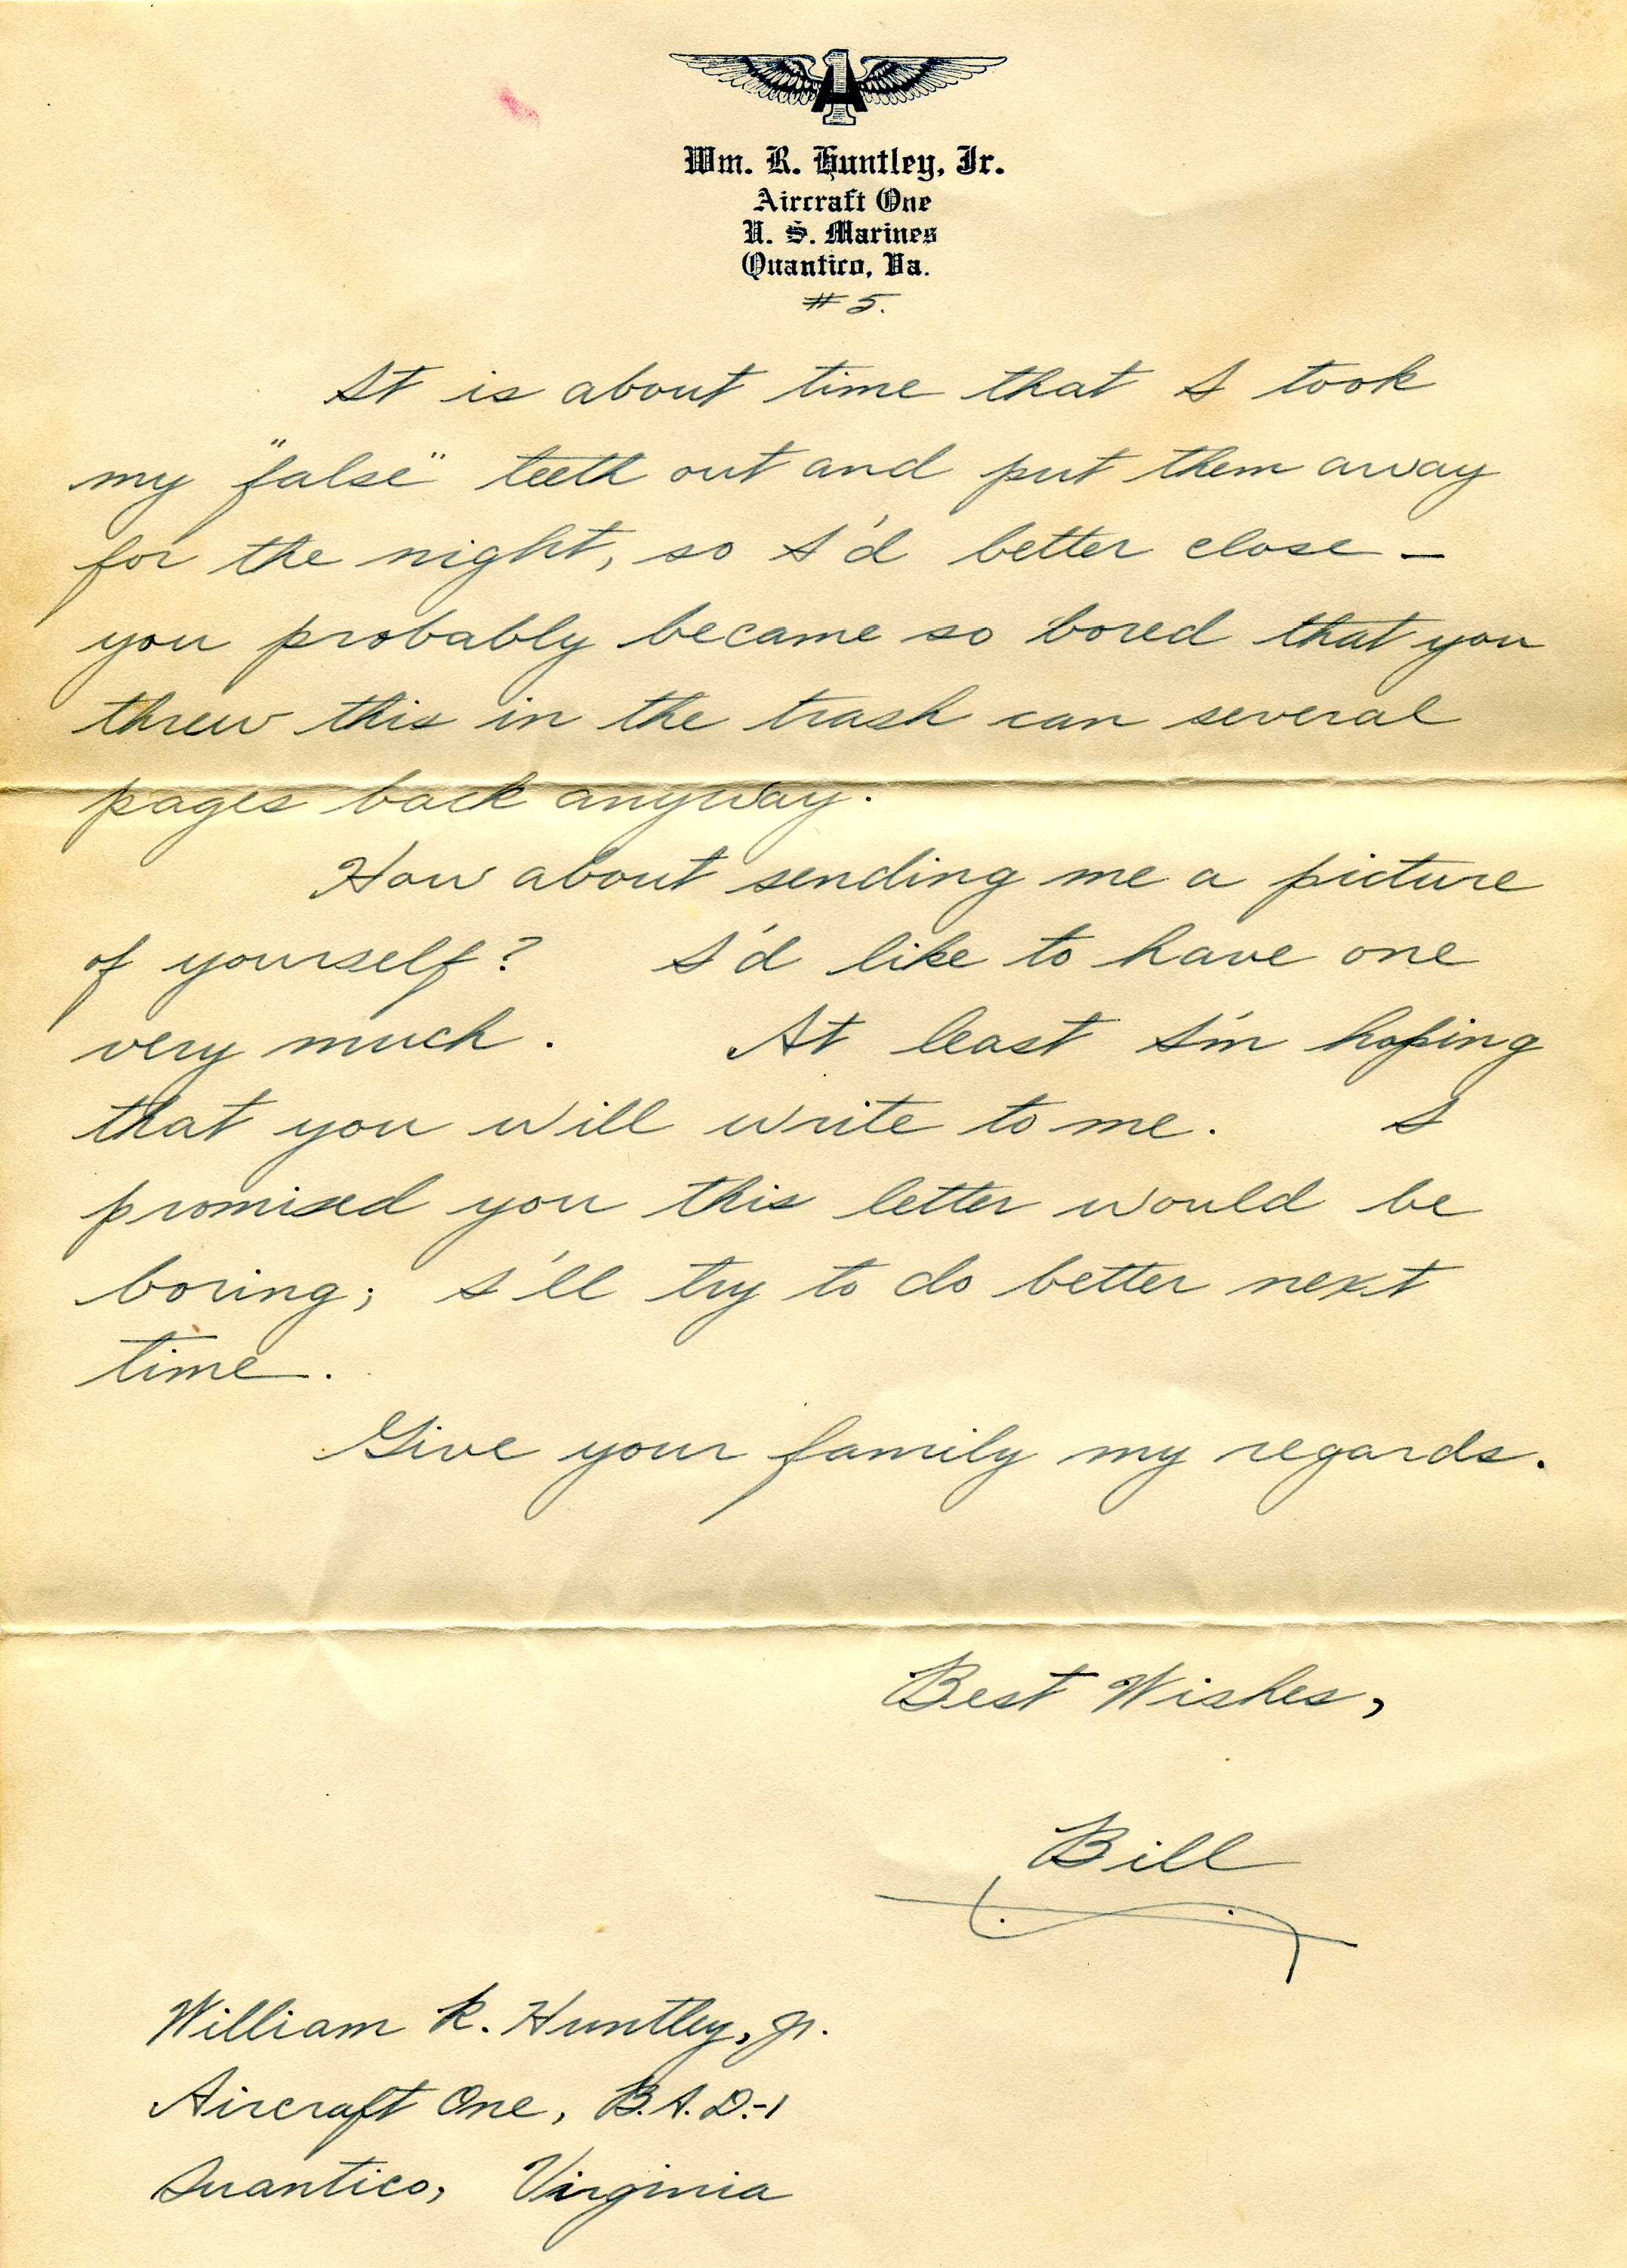 Wm. R. Huntley, Jr.
Aircraft One
U. S. Marines
Quantico, Va.
# 5.
It is about time that I took
my "false" teeth out and put them away
for the night, so I'd better close –
you probably became so bored that you
threw this in the trash can several
pages back anyway.
How about sending me a picture
of yourself? I'd like to have one
very much. At least I'm hoping
that you will write to me. I
promised you this letter would be
boring; I'll try to do better next
time.
Give your family my regards.
Best Wishes,
Bill
William R. Huntley, Jr.
Aircraft One, B.A.D.-1
Quantico, Virginia